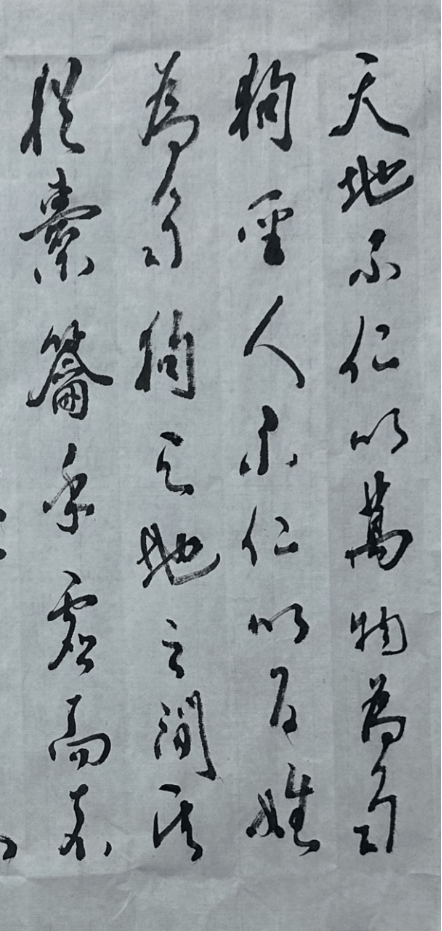 天地不仁以萬物為芻
狗聖人不仁以百姓
為芻狗天地之間其
猶橐籥乎虛而不